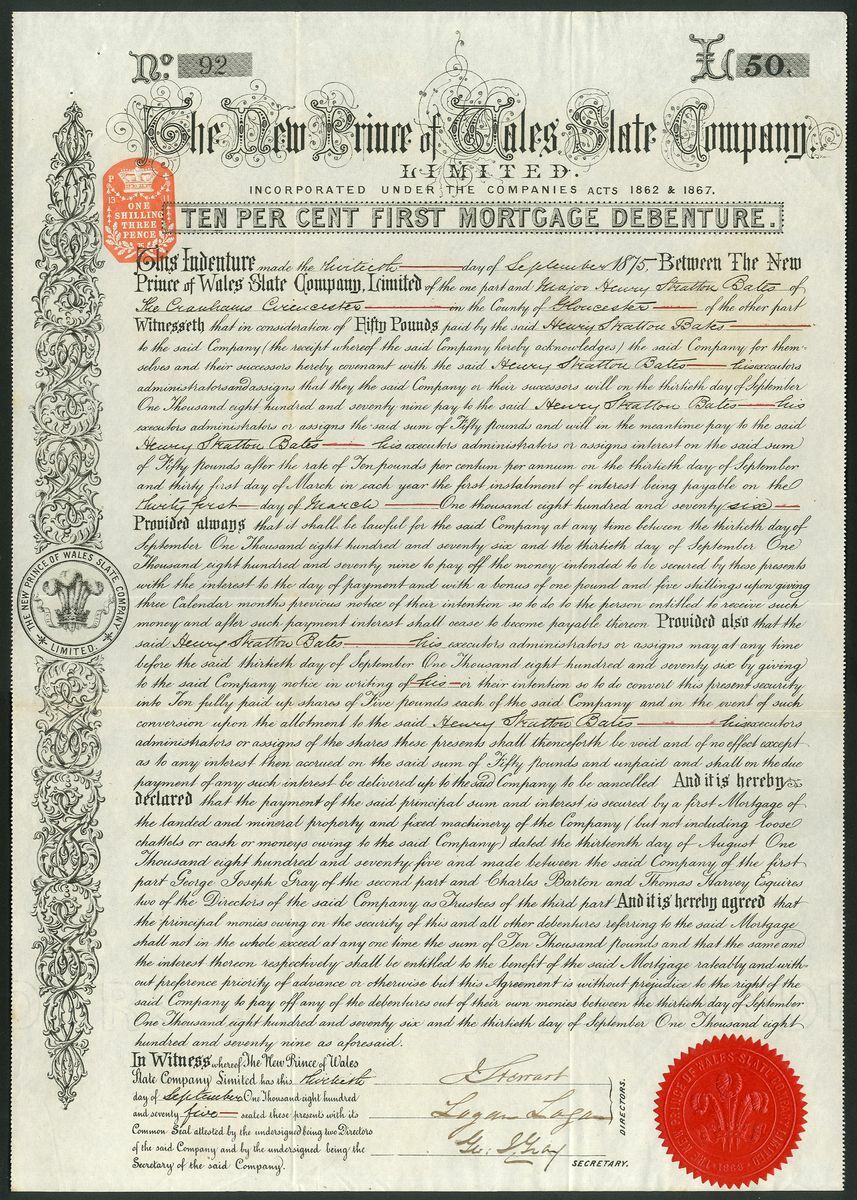 No. 92
£ 50.
The New Prince of Wales Slate Company,
LIMITED.
INCORPORATED UNDER THE COMPANIES ACTS 1862 & 1867.
TEN PER CENT FIRST MORTGAGE DEBENTURE.
P 13
ONE
SHILLING
THREE
PENCE
This Indenture made the thirtieth day of September 1875, Between The New
Prince of Wales Slate Company, Limited of the one part and Major Henry Stratton Bates of
The Cranhams Cirencester in the County of Gloucester of the other part
Witnesseth that in consideration of Fifty Pounds paid by the said Henry Stratton Bates
to the said Company (the receipt whereof the said Company hereby acknowledges) the said Company for them-
selves and their successors hereby covenant with the said Henry Stratton Bates his executors
administrators and assigns that they the said Company or their successors will on the thirtieth day of September
One Thousand eight hundred and seventy nine pay to the said Henry Stratton Bates his
executors administrators or assigns the said sum of Fifty pounds and will in the meantime pay to the said
Henry Stratton Bates his executors administrators or assigns interest on the said sum
of Fifty pounds after the rate of Ten pounds per centum per annum on the thirtieth day of September
and thirty first day of March in each year the first instalment of interest being payable on the
thirty first day of March One thousand eight hundred and seventy six
Provided always that it shall be lawful for the said Company at any time between the thirtieth day of
September One Thousand eight hundred and seventy six and the thirtieth day of September One
Thousand eight hundred and seventy nine to pay off the money intended to be secured by these presents
with the interest to the day of payment and with a bonus of one pound and five shillings upon giving
three Calendar months previous notice of their intention so to do to the person entitled to receive such
money and after such payment interest shall cease to become payable thereon Provided also that the
said Henry Stratton Bates his executors administrators or assigns may at any time
before the said thirtieth day of September One Thousand eight hundred and seventy six by giving
to the said Company notice in writing of his or their intention so to do convert this present security
into Ten fully paid up shares of Five pounds each of the said Company and in the event of such
conversion upon the allotment to the said Henry Stratton Bates his executors
administrators or assigns of the shares these presents shall thenceforth be void and of no effect except
as to any interest then accrued on the said sum of Fifty pounds and unpaid and shall on the due
payment of any such interest be delivered up to the said Company to be cancelled And it is hereby
declared that the payment of the said principal sum and interest is secured by a first Mortgage of
the landed and mineral property and fixed machinery of the Company (but not including loose
chattels or cash or moneys owing to the said Company) dated the thirteenth day of August One
Thousand eight hundred and seventy five and made between the said Company of the first
part George Joseph Gray of the second part and Charles Barton and Thomas Harvey Esquires
two of the Directors of the said Company as Trustees of the third part And it is hereby agreed that
the principal monies owing on the security of this and all other debentures referring to the said Mortgage
shall not in the whole exceed at any one time the sum of Ten Thousand pounds and that the same and
the interest thereon respectively shall be entitled to the benefit of the said Mortgage rateably and with-
out preference priority of advance or otherwise but this Agreement is without prejudice to the right of the
said Company to pay off any of the debentures out of their own monies between the thirtieth day of September
One Thousand eight hundred and seventy six and the thirtieth day of September One Thousand eight
hundred and seventy nine as aforesaid.
THE NEW PRINCE OF WALES SLATE COMPANY
LIMITED.
In Witness whereof The New Prince of Wales
Slate Company Limited has this thirtieth
day of September One Thousand eight hundred
and seventy five sealed these presents with its
Common Seal attested by the undersigned being two Directors
of the said Company and by the undersigned being the
Secretary of the said Company.
J Stewart
Logan Logan
DIRECTORS.
Geo: J. Gray
SECRETARY.